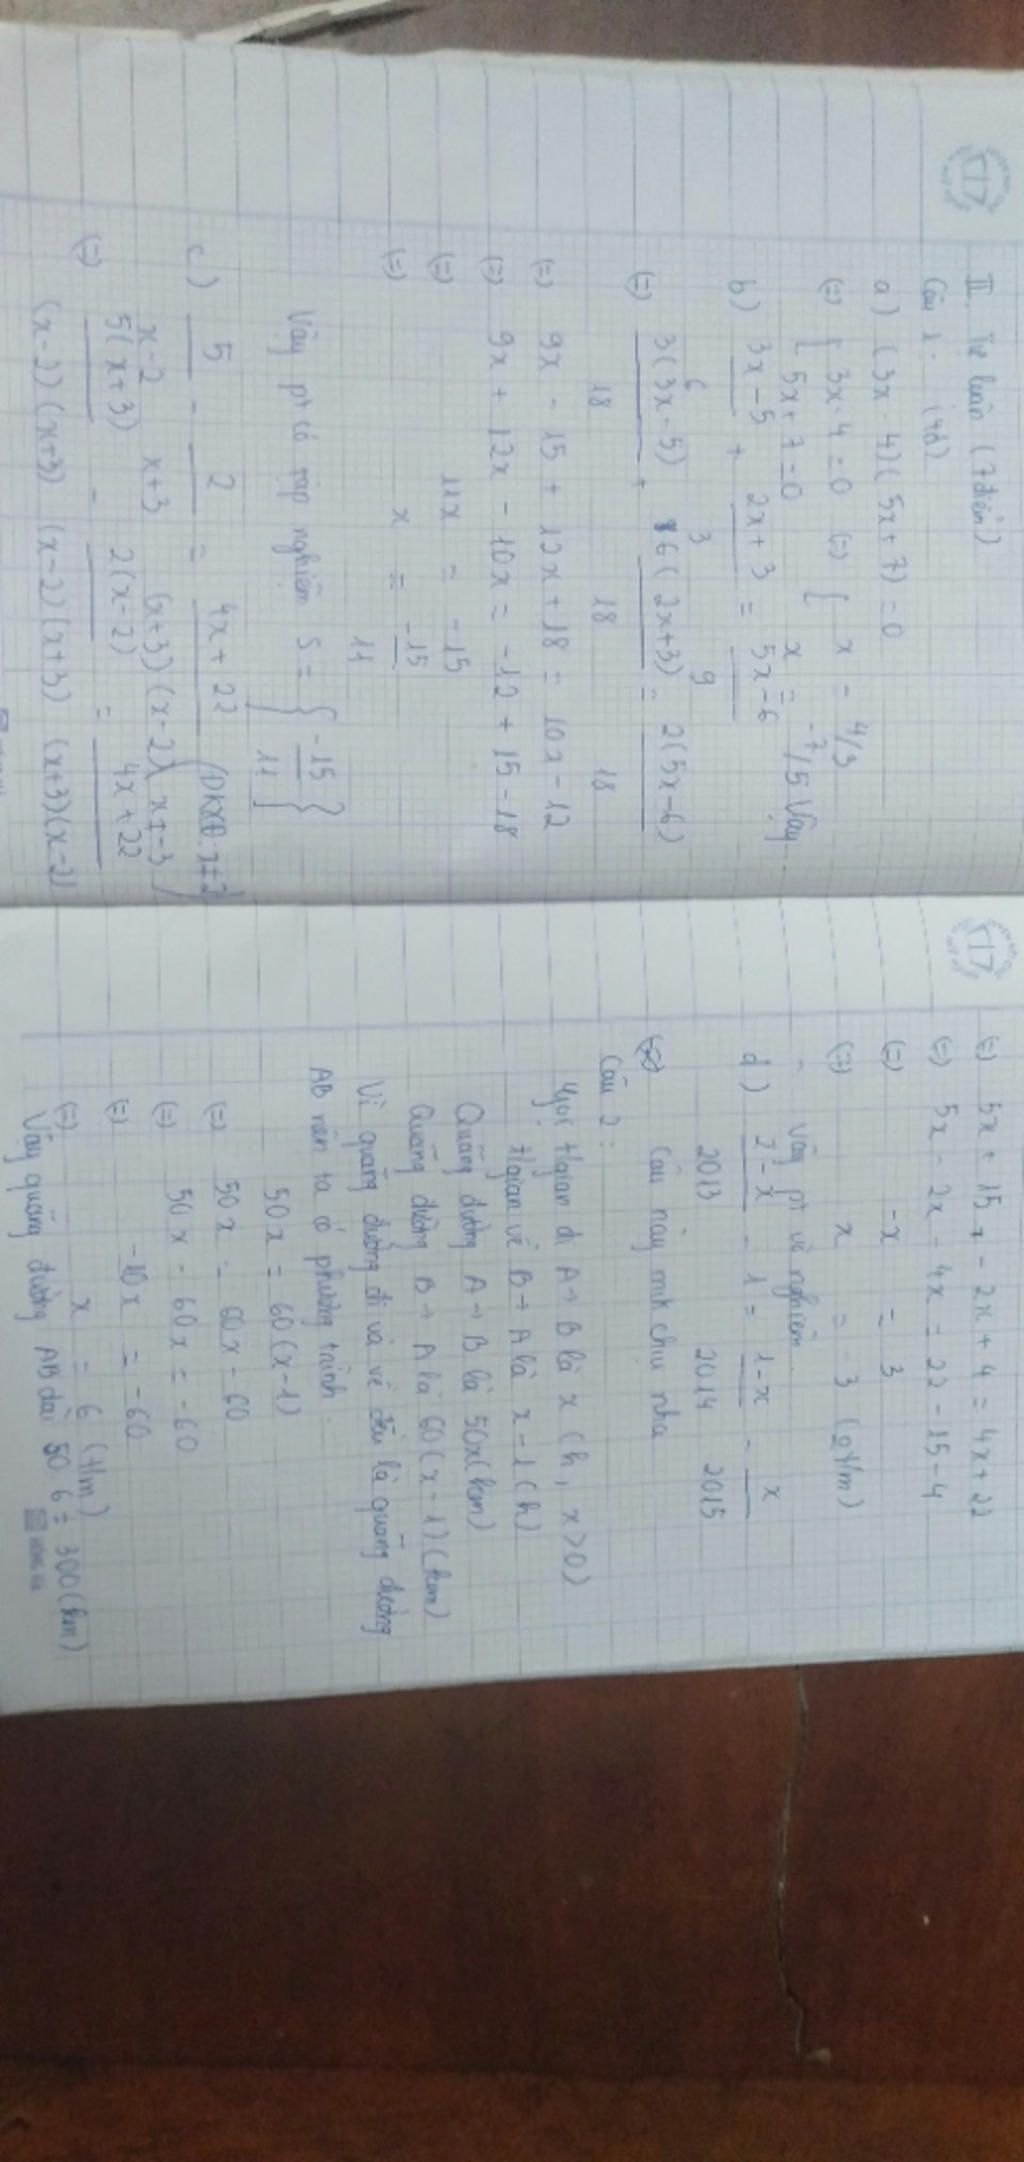 II. Tự luận (7 điểm)
Câu 1: (4đ)
a) (3x - 4)(5x + 7) = 0
(=) [ 3x - 4 = 0 (=) [ x = 4/3
5x + 7 = 0 x = -7/5 Vậy...
b) 3x - 5 + 2x + 3 = 5x - 6
6 3 9
(=) 3(3x - 5) + 6(2x+3) = 2(5x-6)
18 18 18
(=) 9x - 15 + 12x + 18 = 10x - 12
(=) 9x + 12x - 10x = -12 + 15 - 18
(=) 11x = -15
(=) x = -15
11
Vậy pt có tập nghiệm S = { -15
11 }
c) 5 - 2 = 4x + 22 (ĐKXĐ: x ≠ 2
x - 2 x + 3 (x+3)(x-2) x ≠ -3)
(=) 5(x+3) - 2(x-2) = 4x + 22
(x-2)(x+3) (x-2)(x+3) (x+3)(x-2)
(=) 5x + 15 - 2x + 4 = 4x + 22
(=) 5x - 2x - 4x = 22 - 15 - 4
(=) -x = 3
(=) x = -3 (2t/m)
- Vậy pt vô nghiệm
d) 2 - x - 1 = 1 - x - x
2013 2014 2015
Câu này mk chịu nha
Câu 2:
Gọi t/gian đi A → B là x (h, x > 0)
t/gian về B → A là x - 1 (h)
Quãng đường A → B là 50x (km)
Quãng đường B → A là 60(x - 1) (km)
Vì quãng đường đi và về đều là quãng đường
AB nên ta có phương trình:
50x = 60(x-1)
(=) 50x = 60x - 60
(=) 50x - 60x = -60
(=) -10x = -60
(=) x = 6 (t/m)
Vậy quãng đường AB dài 50 6 = 300 (km)